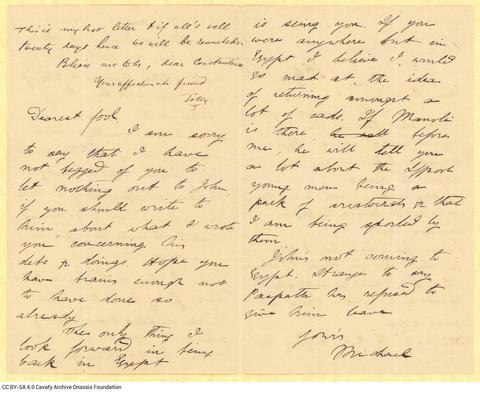 This is my last letter & if all's well
twenty days hence we will be reunited.
Believe me to be, dear Constantine
Your affectionate friend
Dearest fool
I am sorry
to say that I have
not begged of you to
let nothing out to John
if you should write to
him, about what I wrote
you concerning his
debts & doings. Hope you
have brains enough not
to have done so
already.
The only thing I
look forward in being
back in Egypt
is seeing you. If you
were anywhere but in
Egypt I believe I would
go mad at the idea
of returning amongst a
lot of cads. If Manoli
is there before
me, he will tell you
a lot about the
young men being a
pack of aristocrats & that
I am being spoiled by
them.
John's not coming to
Egypt. Strange to say
has refused to
give him leave
Yours
Michael
CC BY-SA 4.0 Cavafy Archive Onassis Foundation